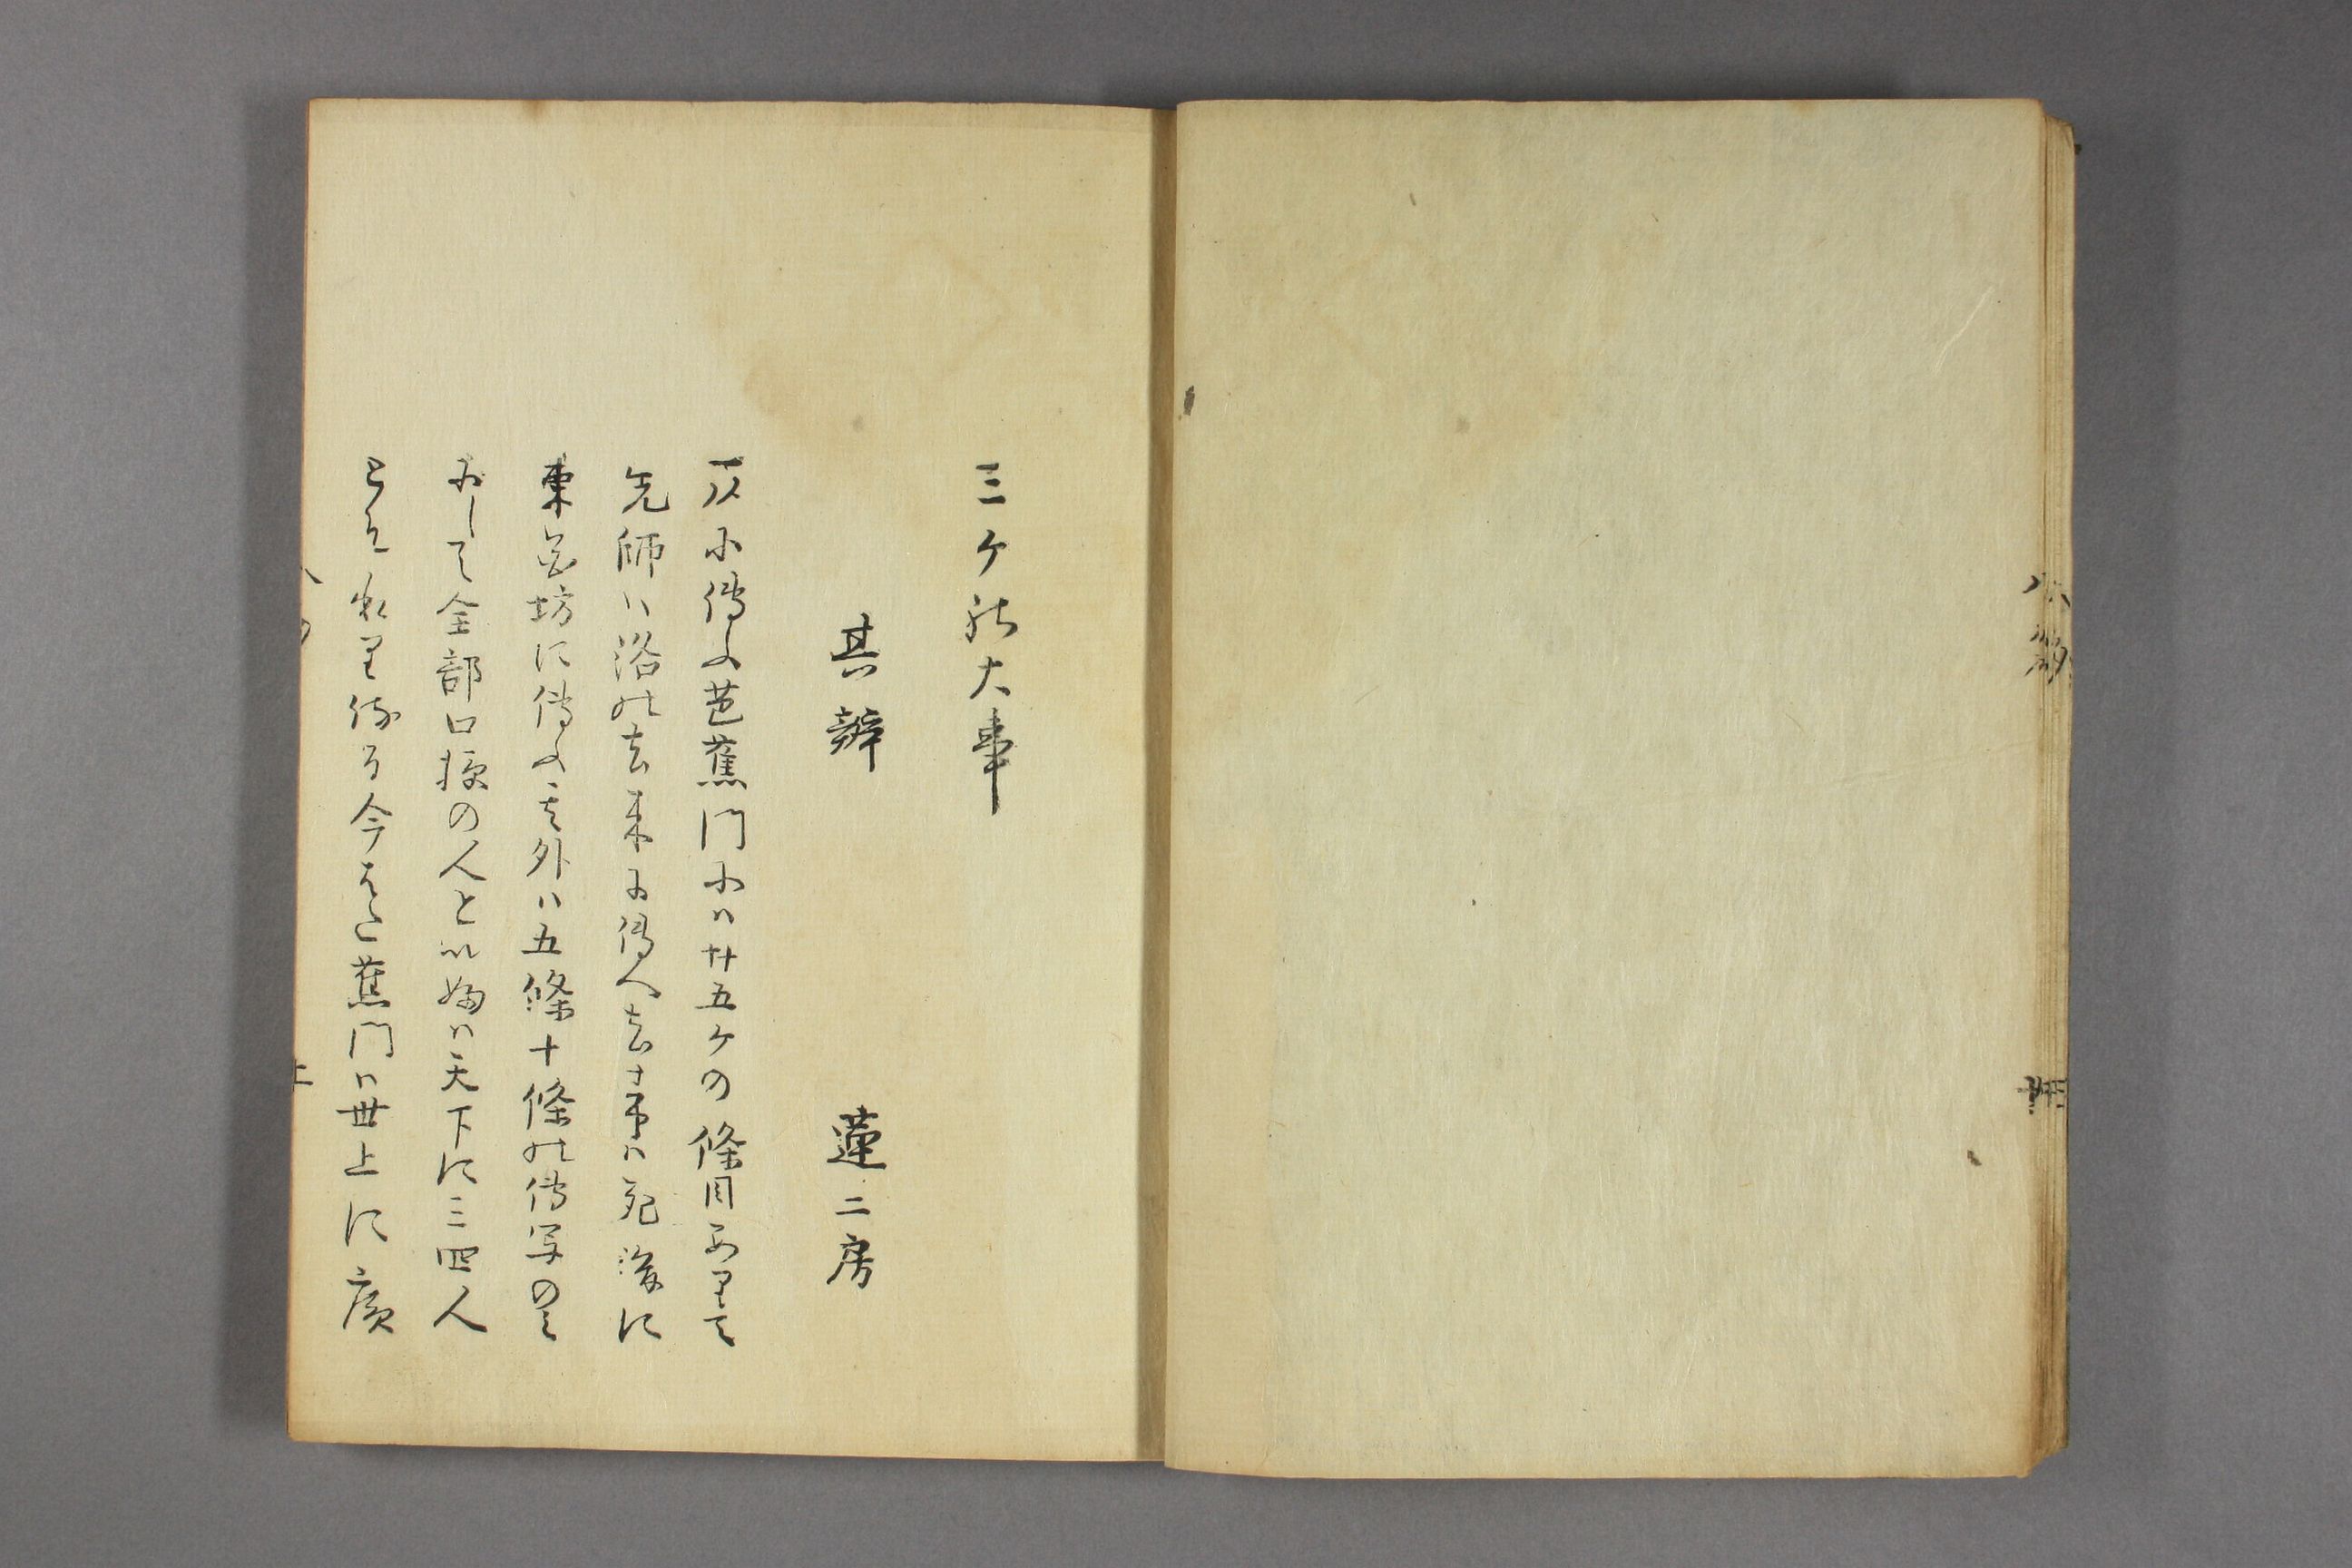 三ケ能大事
其辨
蓮二房
仄小傳ふ芭蕉門小ハ廿五ケの條目あり天
先師ハ洛能去来に傳へ去来ハ死後に
東花坊に傳ふ其外ハ五條十條能傳写のミ
尓して全部口授の人といへるハ天下に三四人
今者蕉門ハ世上に廣